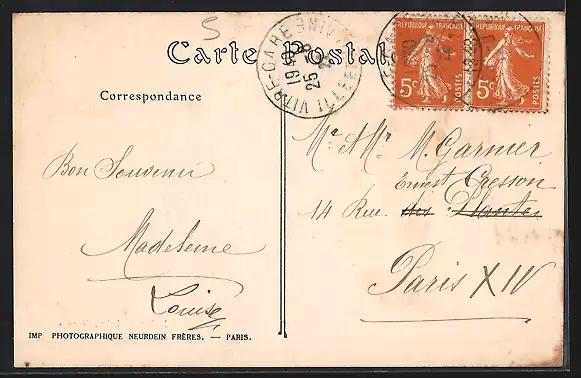 5
Carte Postale
VITRÉ-GARE ILLE-ET-VILAINE
19 30
25
RÉPUBLIQUE FRANÇAISE
5c
POSTES
RÉPUBLIQUE FRANÇAISE
5c
POSTES
Correspondance
Bon Souvenir
Madeleine
Louise
Mr & Mme M. Garnier
Ernest Cresson
14 Rue des Plantes
Paris XIV
IMP PHOTOGRAPHIQUE NEURDEIN FRÈRES. — PARIS.